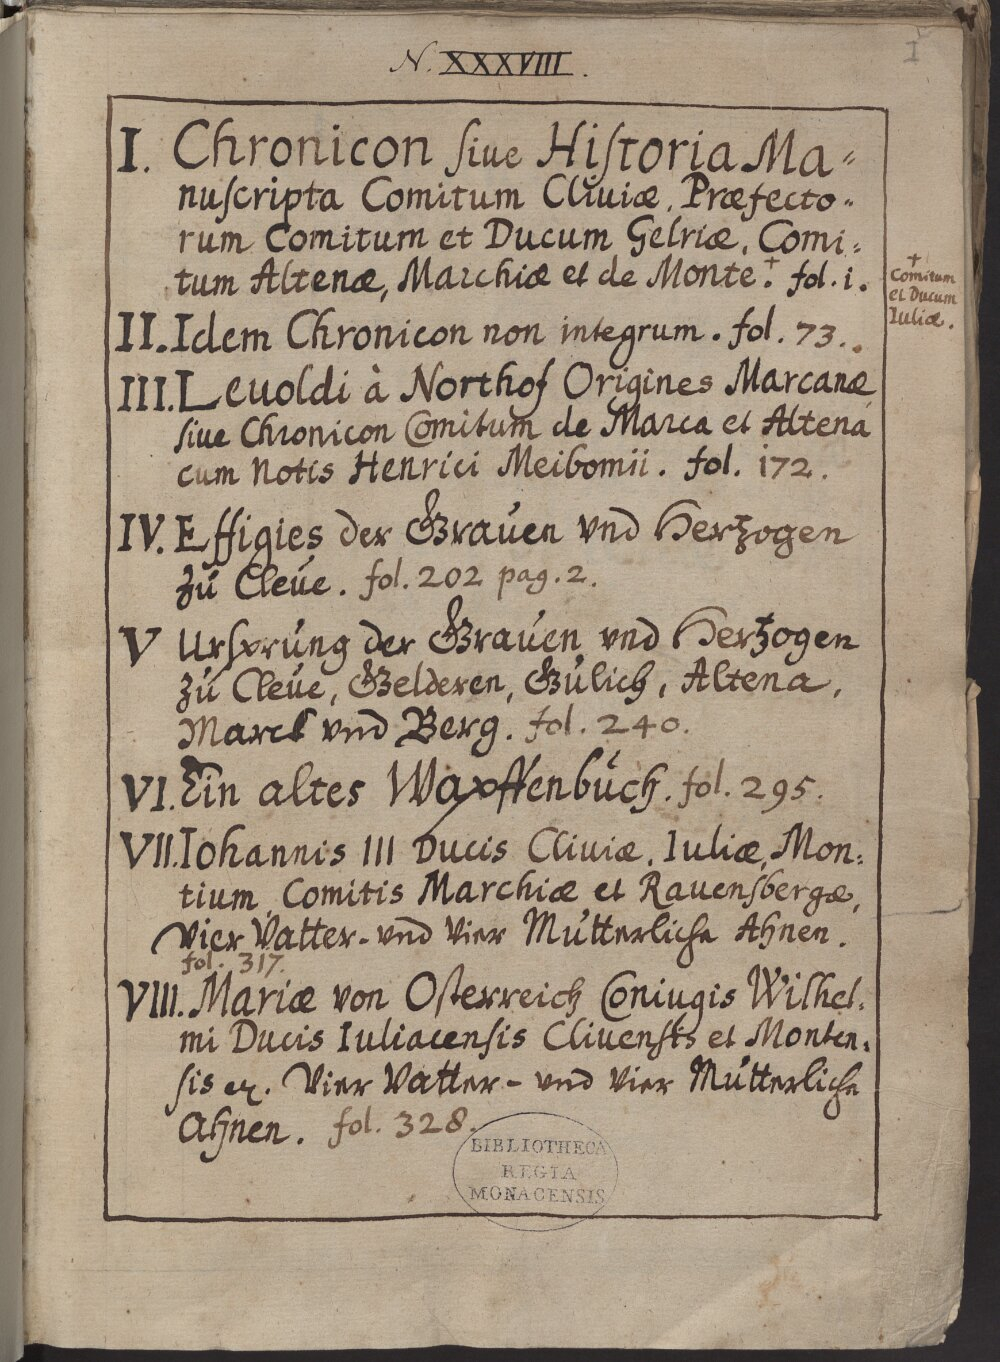 N. XXXVIII.
I
I. Chronicon siue Historia Ma=
nuscripta Comitum Cliuiæ, Præfecto=
rum Comitum et Ducum Gelriæ, Comi=
tum Altenæ, Marchiæ et de Monte.+ fol. i.
+
Comitum
et Ducum
Iuliæ.
II. Idem Chronicon non integrum. fol. 73.
III. Leuoldi à Northof Origines Marcanæ
siue Chronicon Comitum de Marca et Altena
cum Notis Henrici Meibomii. fol. 172.
IV. Effigies der Grauen vnd Hertzogen
zu Cleue. fol. 202 pag. 2.
V Ursprung der Grauen vnd Hertzogen
zu Cleue, Gelderen, Gulich, Altena,
Marck vnd Berg. fol. 240.
VI. Ein altes Wapffenbuch. fol. 295.
VII. Iohannis III Ducis Cliuiæ, Iuliæ, Mon=
tium Comitis Marchiæ et Rauensbergæ,
Vier Vatter- vnd Vier Mutterliche Ahnen.
fol. 317.
VIII. Mariæ von Osterreich Coniugis Wilhel=
mi Ducis Iuliacensis Cliuensis et Monten=
sis ec. Vier Vatter- vnd Vier Mutterliche
Ahnen. fol. 328.
BIBLIOTHECA
REGIA
MONACENSIS